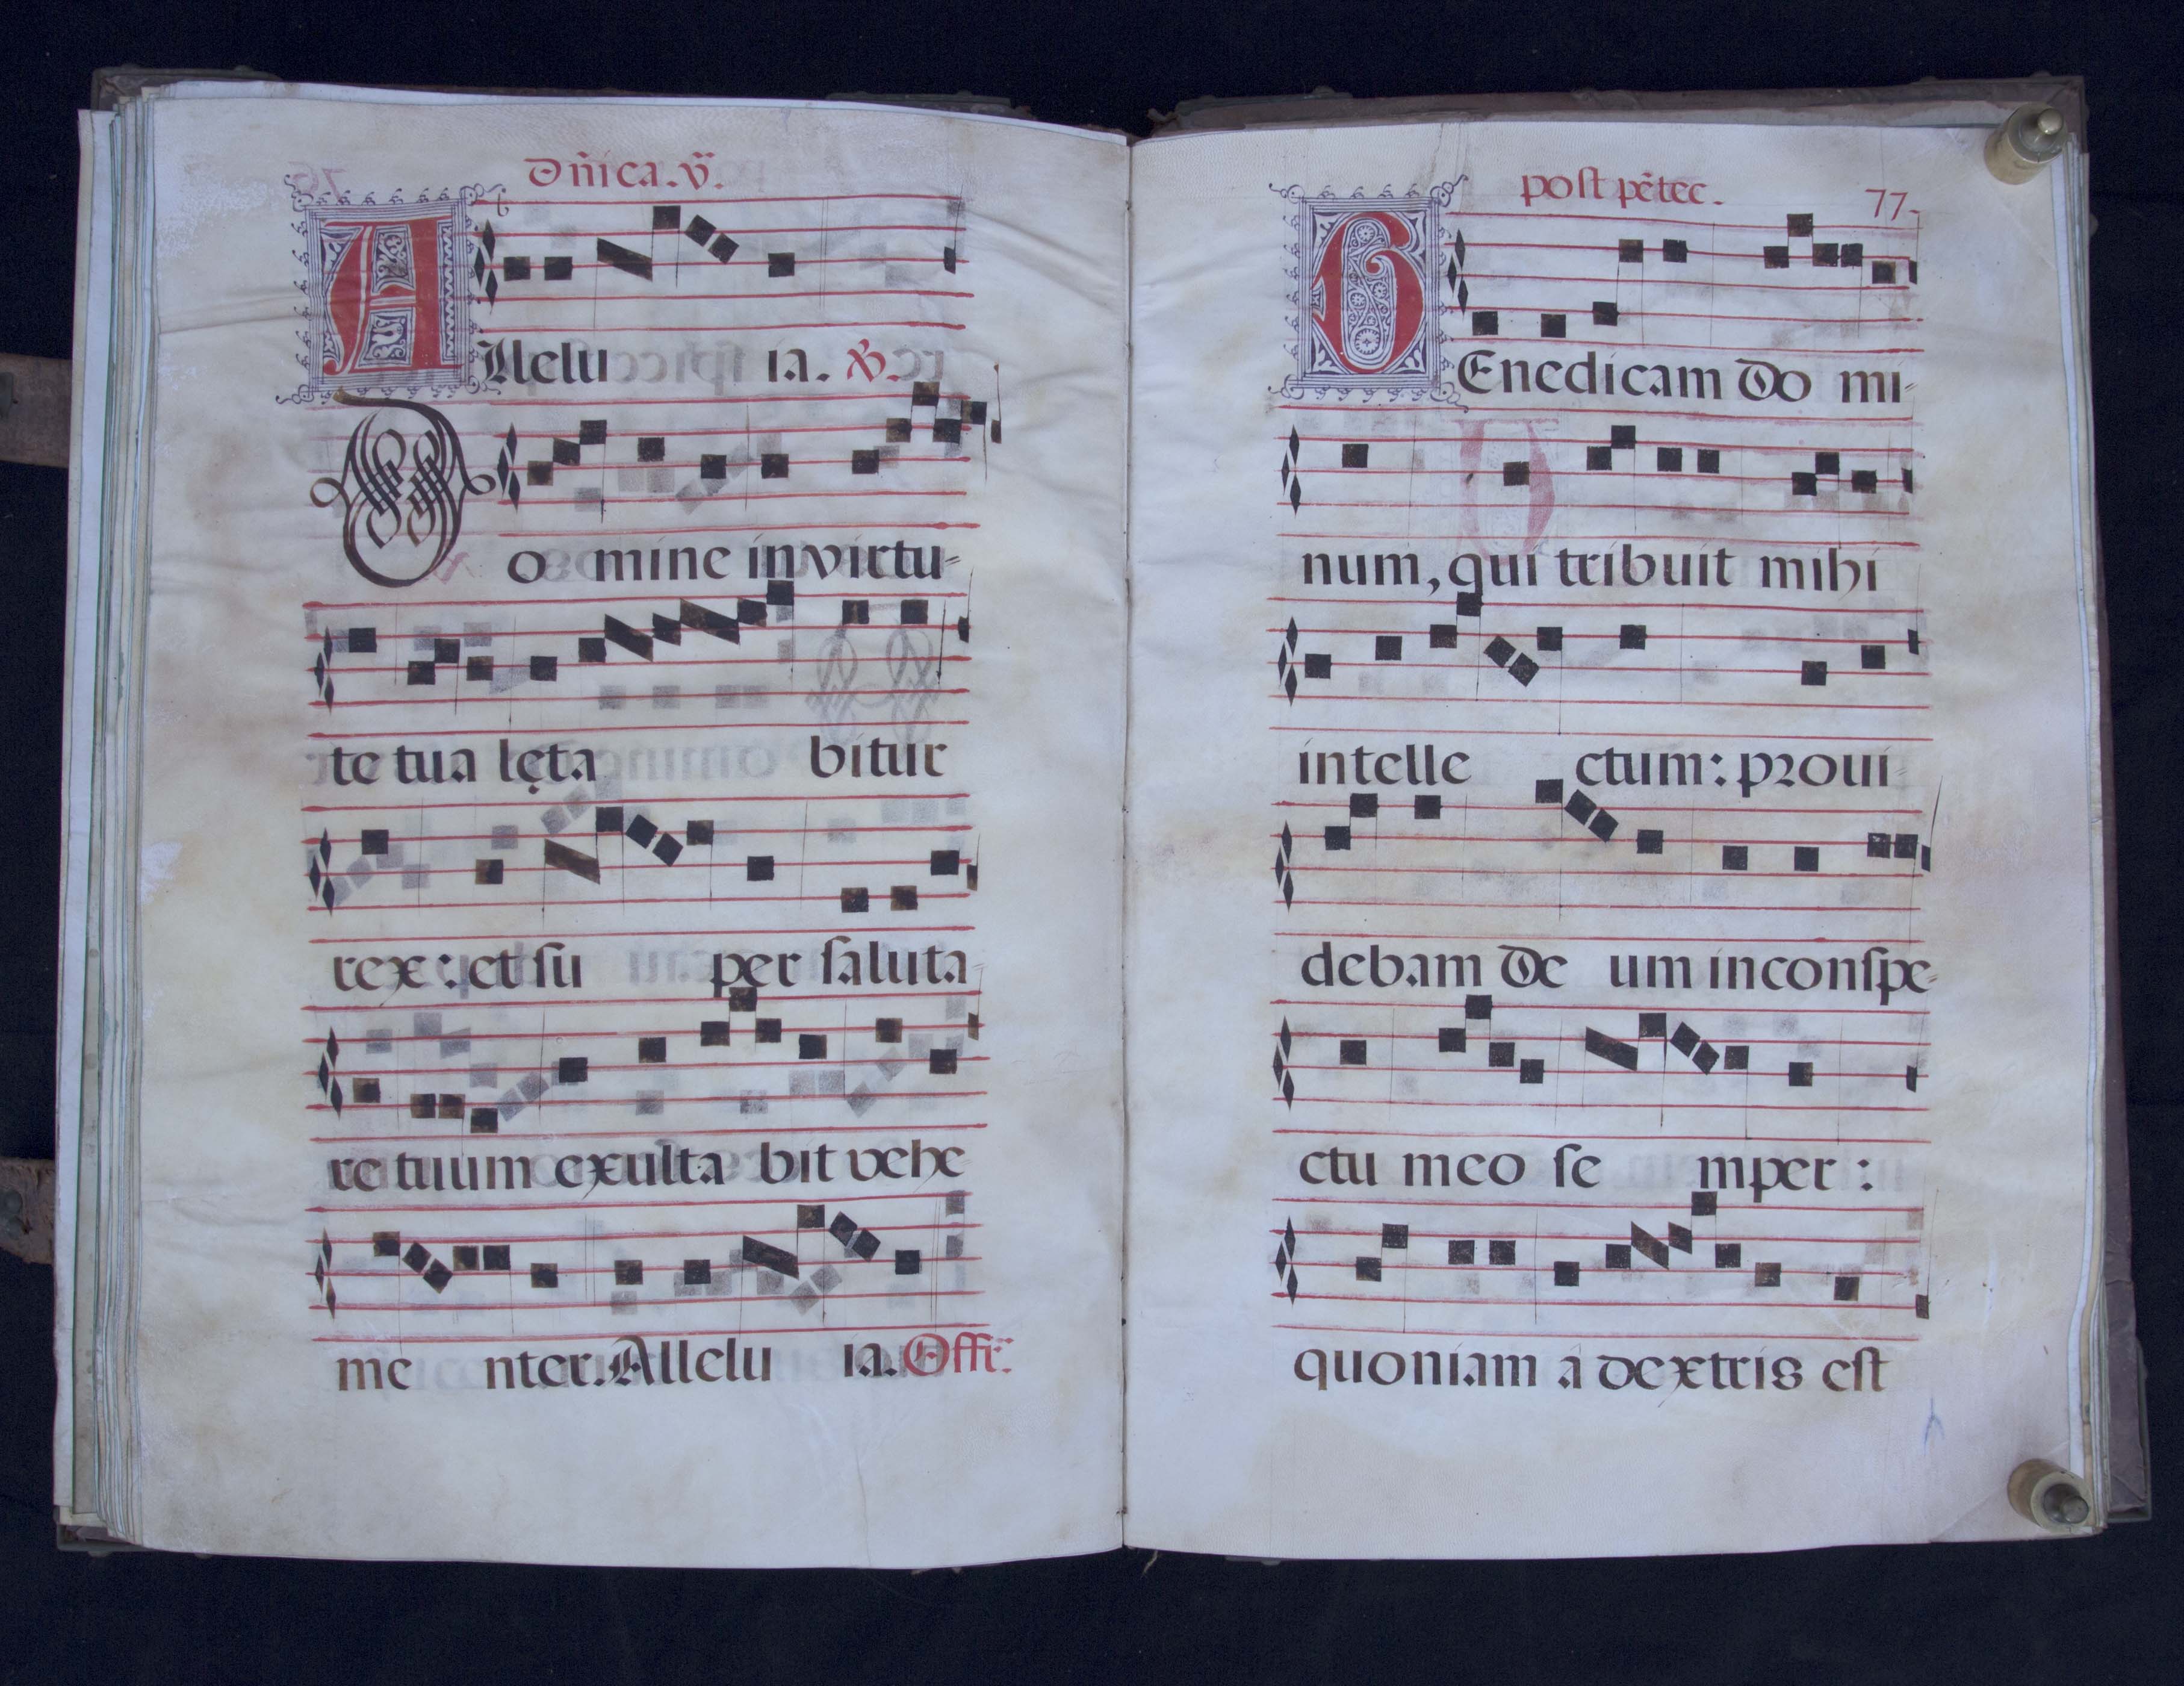 Dñica.v̈.
Allelu ia. ℣.
Do mine in virtu-
te tua lęta bitur
rex: et su per saluta-
re tuum exulta bit vehe
me nter. Allelu ia. Offr̄.
post pẽtec. 77.
BEnedicam Do mi-
num, qui tribuit mihi
intelle ctum: proui-
debam De um in conspe-
ctu meo se mper:
quoniam a dextris est